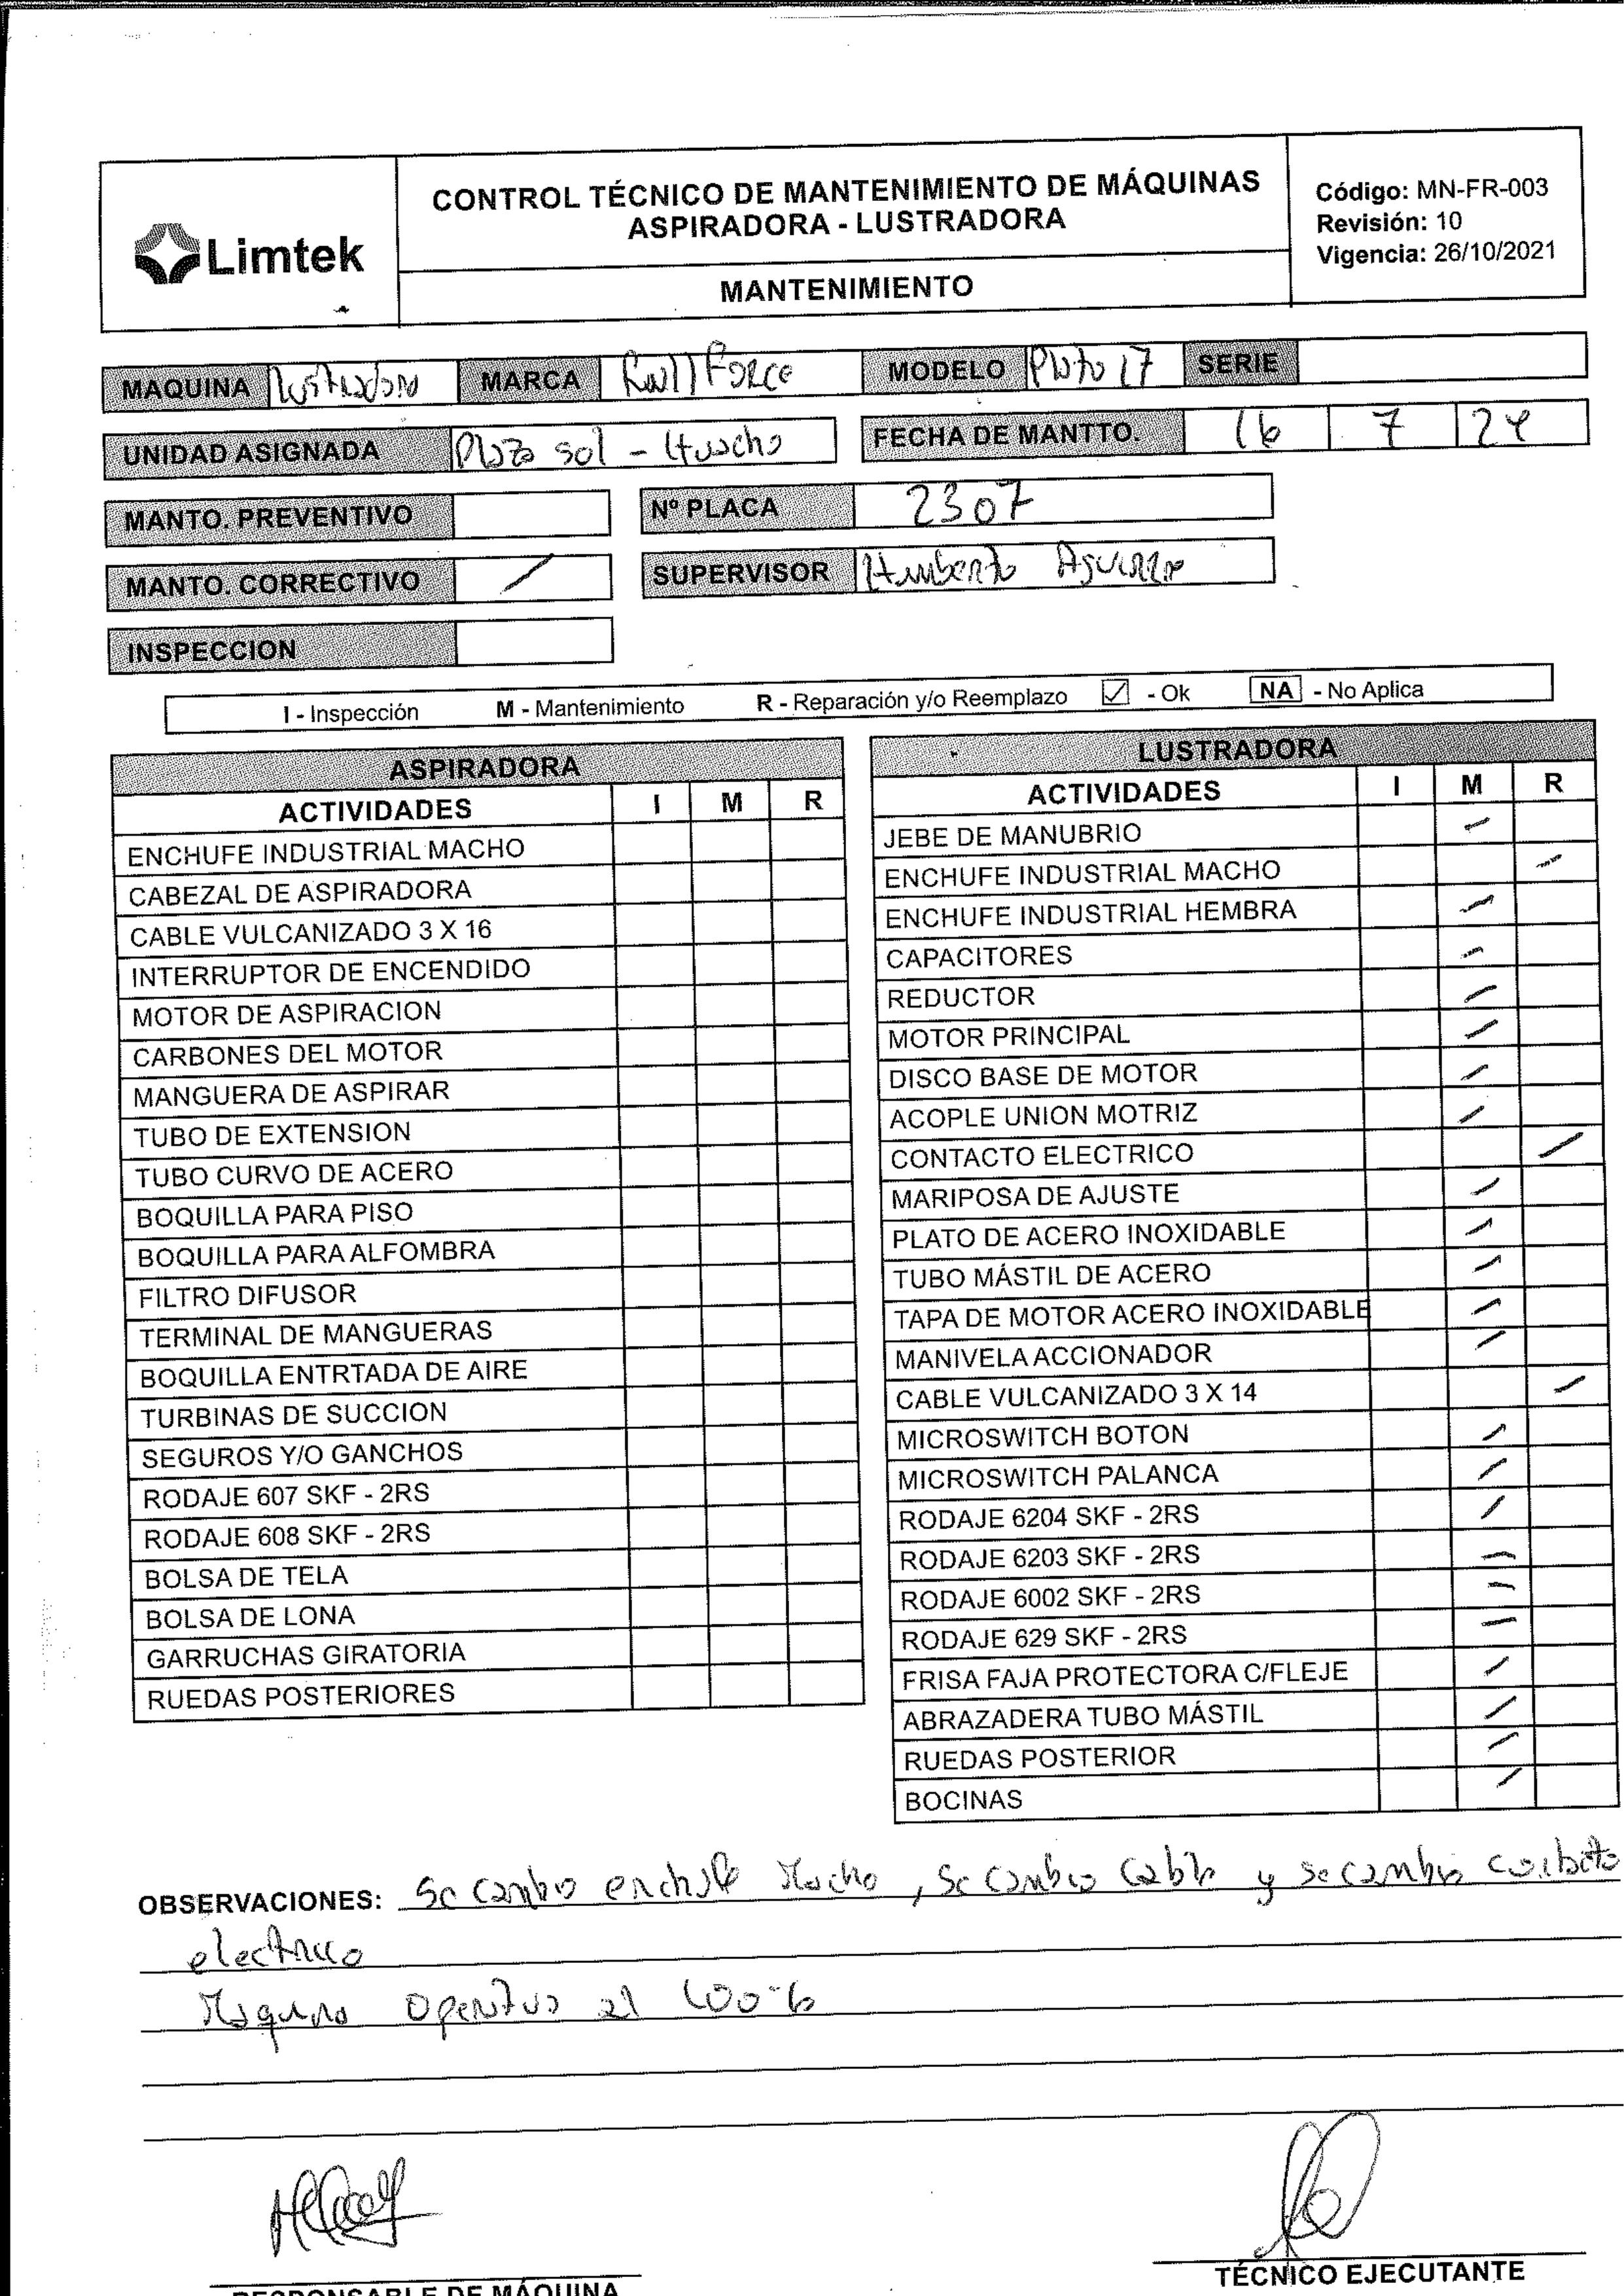 Limtek
CONTROL TÉCNICO DE MANTENIMIENTO DE MÁQUINAS
ASPIRADORA - LUSTRADORA
MANTENIMIENTO
Código: MN-FR-003
Revisión: 10
Vigencia: 26/10/2021
MAQUINA lustradora MARCA MODELO Pluto 17 SERIE
UNIDAD ASIGNADA Plaza sol - Huacho FECHA DE MANTTO. 16 7 24
MANTO. PREVENTIVO Nº PLACA 2307
MANTO. CORRECTIVO / SUPERVISOR Humberto Aguirre
INSPECCION
I - Inspección M - Mantenimiento R - Reparación y/o Reemplazo ☑ - Ok NA - No Aplica
ASPIRADORA
ACTIVIDADES I M R
ENCHUFE INDUSTRIAL MACHO
CABEZAL DE ASPIRADORA
CABLE VULCANIZADO 3 X 16
INTERRUPTOR DE ENCENDIDO
MOTOR DE ASPIRACION
CARBONES DEL MOTOR
MANGUERA DE ASPIRAR
TUBO DE EXTENSION
TUBO CURVO DE ACERO
BOQUILLA PARA PISO
BOQUILLA PARA ALFOMBRA
FILTRO DIFUSOR
TERMINAL DE MANGUERAS
BOQUILLA ENTRTADA DE AIRE
TURBINAS DE SUCCION
SEGUROS Y/O GANCHOS
RODAJE 607 SKF - 2RS
RODAJE 608 SKF - 2RS
BOLSA DE TELA
BOLSA DE LONA
GARRUCHAS GIRATORIA
RUEDAS POSTERIORES
LUSTRADORA
ACTIVIDADES I M R
JEBE DE MANUBRIO /
ENCHUFE INDUSTRIAL MACHO /
ENCHUFE INDUSTRIAL HEMBRA /
CAPACITORES /
REDUCTOR /
MOTOR PRINCIPAL /
DISCO BASE DE MOTOR /
ACOPLE UNION MOTRIZ /
CONTACTO ELECTRICO /
MARIPOSA DE AJUSTE /
PLATO DE ACERO INOXIDABLE /
TUBO MÁSTIL DE ACERO /
TAPA DE MOTOR ACERO INOXIDABLE /
MANIVELA ACCIONADOR /
CABLE VULCANIZADO 3 X 14 /
MICROSWITCH BOTON /
MICROSWITCH PALANCA /
RODAJE 6204 SKF - 2RS /
RODAJE 6203 SKF - 2RS /
RODAJE 6002 SKF - 2RS /
RODAJE 629 SKF - 2RS /
FRISA FAJA PROTECTORA C/FLEJE /
ABRAZADERA TUBO MÁSTIL /
RUEDAS POSTERIOR /
BOCINAS /
OBSERVACIONES: Se cambio enchufe Macho, se cambio cable y se cambio contacto
electrico
Maquina Operativa al 100%
RESPONSABLE DE MÁQUINA
TÉCNICO EJECUTANTE